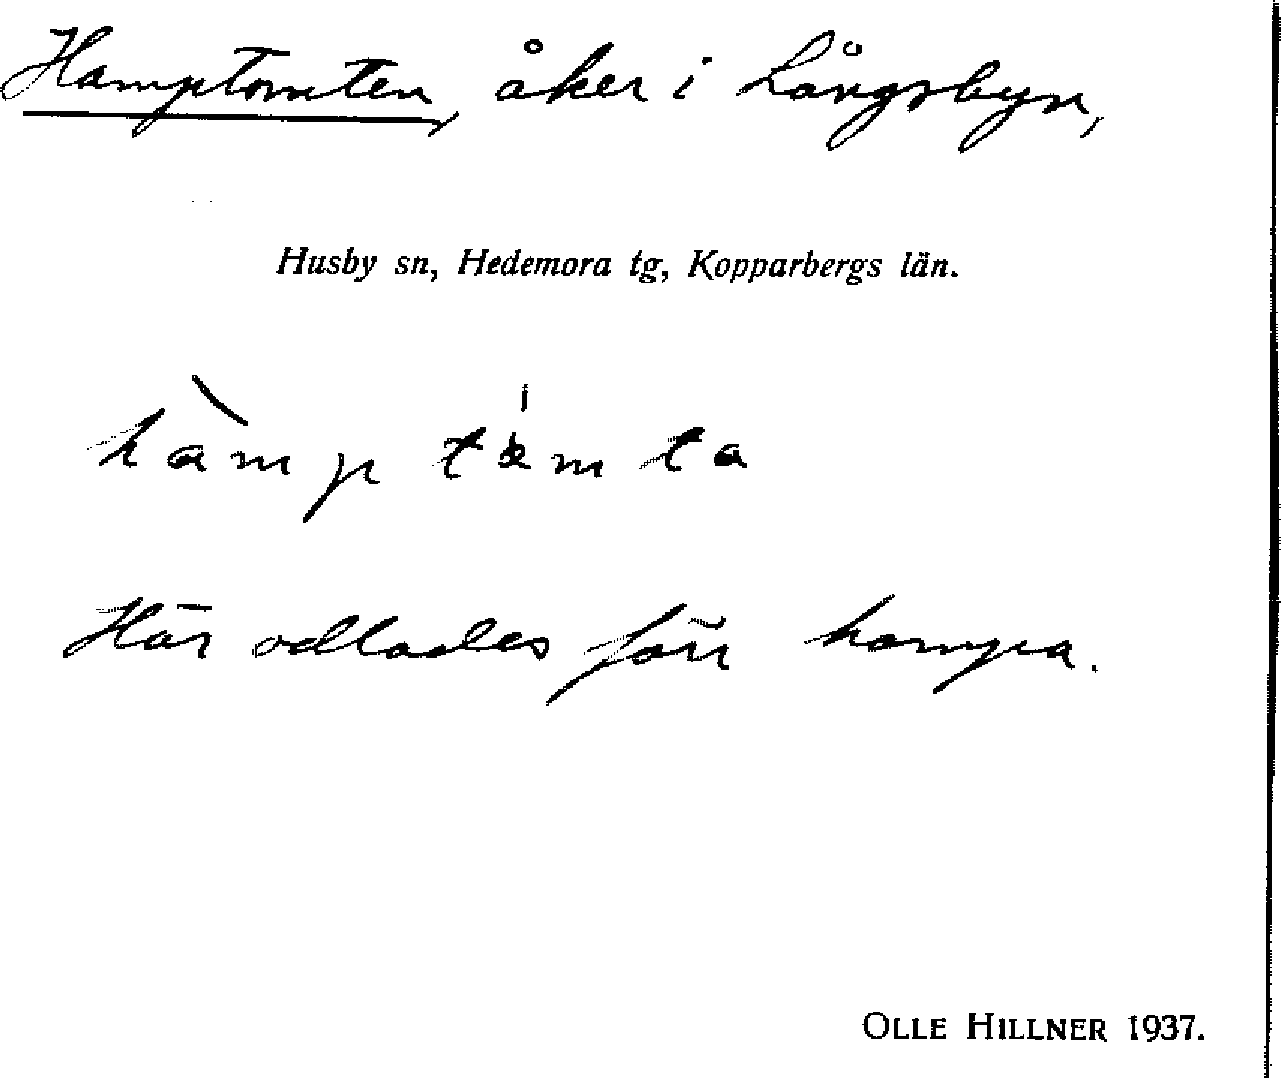 Hamptomten, åker i Långsbyn,
Husby sn, Hedemora tg, Kopparbergs län.
Här odlades förr hampa.
OLLE HILLNER 1937.